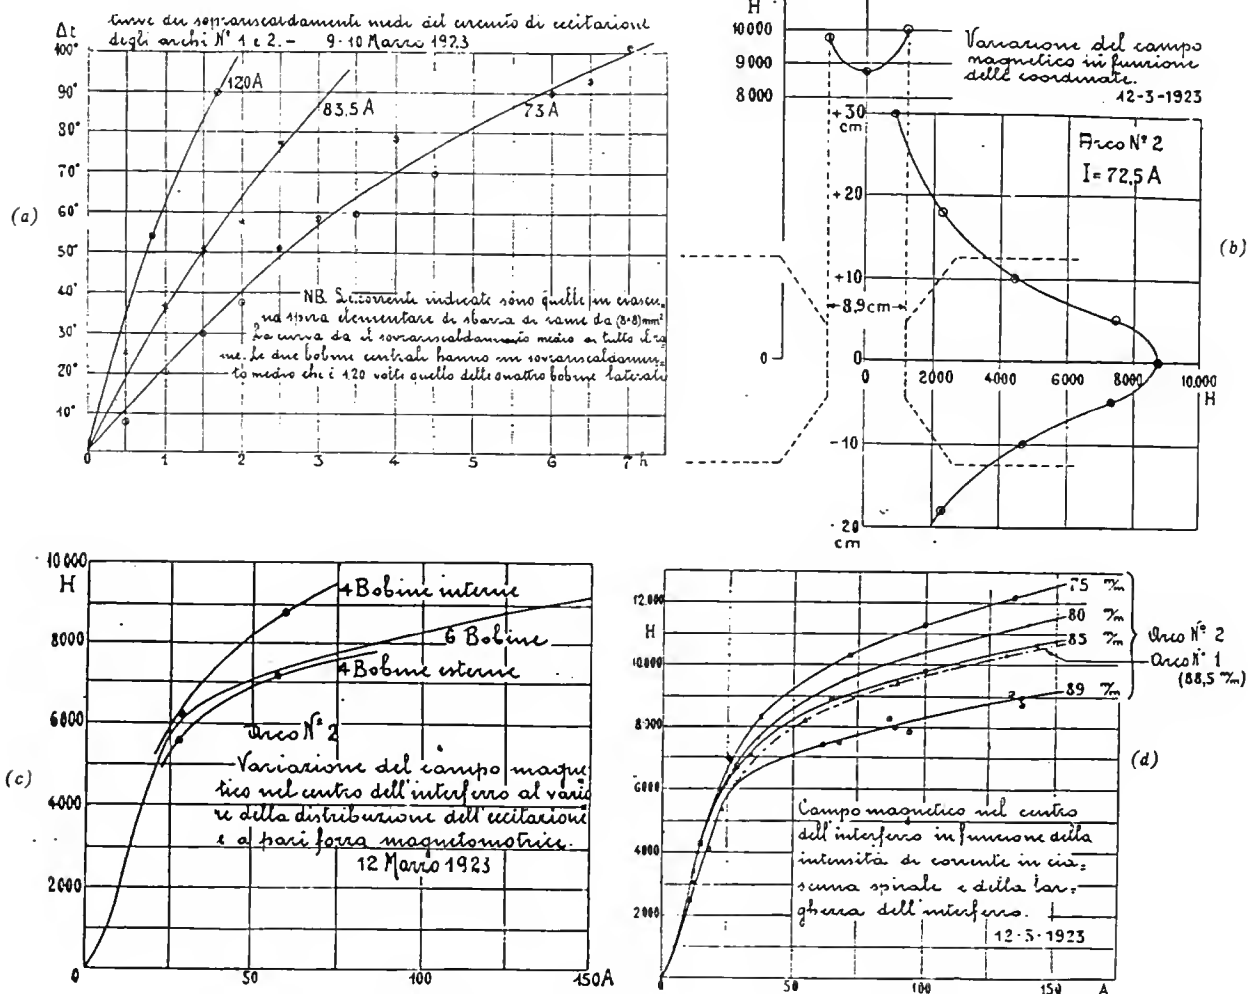 Curve dei soprariscaldamenti medi del circuito di eccitazione
degli archi N° 1 e 2. - 9-10 Marzo 1923
Δt
100°
90°
80°
70°
60°
50°
40°
30°
20°
10°
0 1 2 3 4 5 6 7 h
120A
83,5 A
73 A
(a)
NB. Le correnti indicate sono quelle in ciascu-
na spira elementare di sbarra di rame da (8·8) mm²
La curva da il sovrariscaldamento medio di tutto il ra
me. Le due bobine centrali hanno un sovrariscaldamen-
to medio che è 1,20 volte quello delle quattro bobine laterali
H
10000
9000
8000
Variazione del campo
magnetico in funzione
delle coordinate.
12-3-1923
+30
cm
+20
+10
0
-10
-20
cm
Arco N° 2
I = 72,5 A
8,9 cm
0
0 2000 4000 6000 8000 10.000
H
(b)
10000
H
8000
6000
4000
2000
0 50 100 150A
4 Bobine interne
6 Bobine
4 Bobine esterne
Arco N° 2
Variazione del campo magne
tico nel centro dell'interferro al varia
re della distribuzione dell'eccitazione
e a pari forza magnetomotrice.
12 Marzo 1923
(c)
12.000
H
10.000
8000
6000
4000
2000
0 50 100 150 A
75 m/m
80 m/m
85 m/m
89 m/m
Arco N° 2
Arco N° 1
(88,5 m/m)
2
(d)
Campo magnetico nel centro
dell'interferro in funzione della
intensità di corrente in cia=
scuna spirale e della lar=
ghezza dell'interferro.
12-3-1923